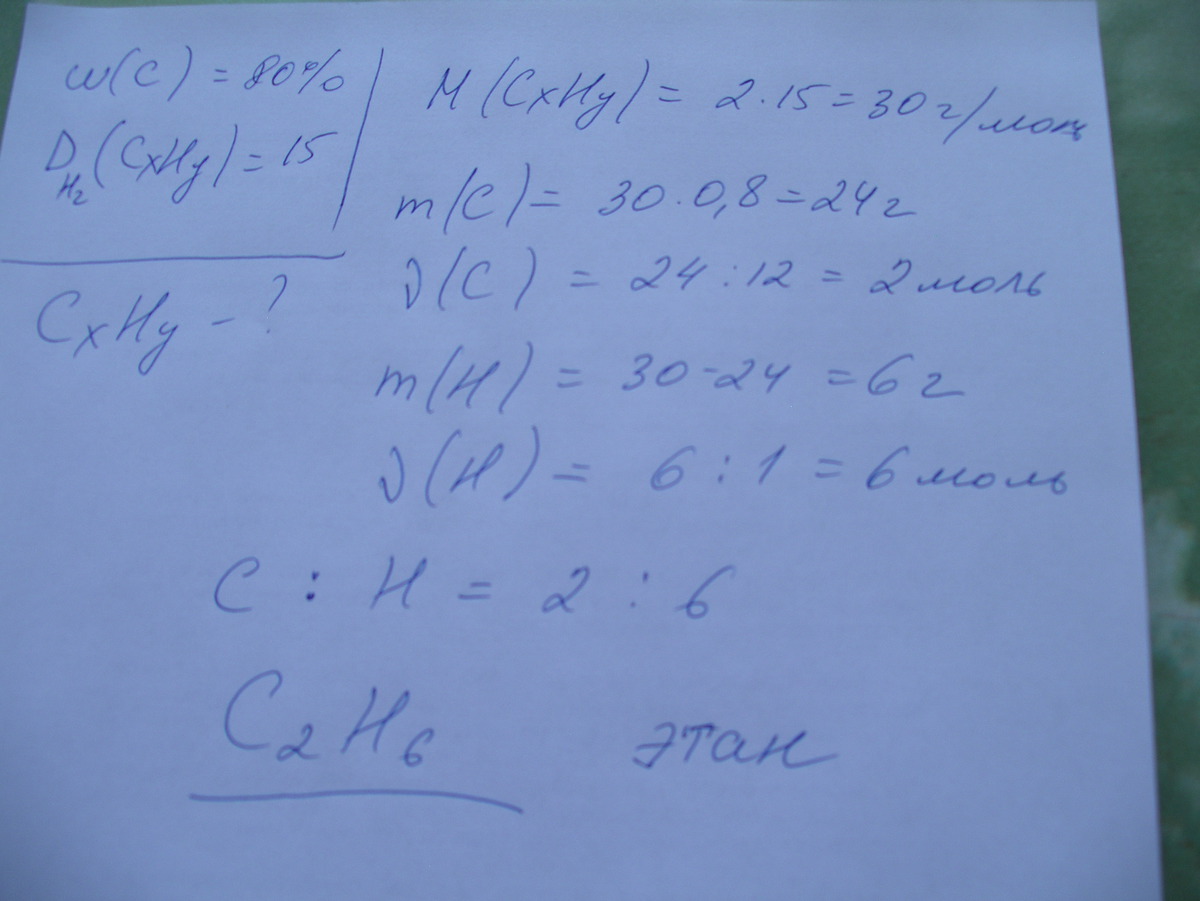 w(C) = 80%
D_H₂(CxHy) = 15
CxHy - ?
M(CxHy) = 2·15 = 30 г/моль
m(C) = 30·0,8 = 24 г
ν(C) = 24 : 12 = 2 моль
m(H) = 30 - 24 = 6 г
ν(H) = 6 : 1 = 6 моль
C : H = 2 : 6
C₂H₆ этан